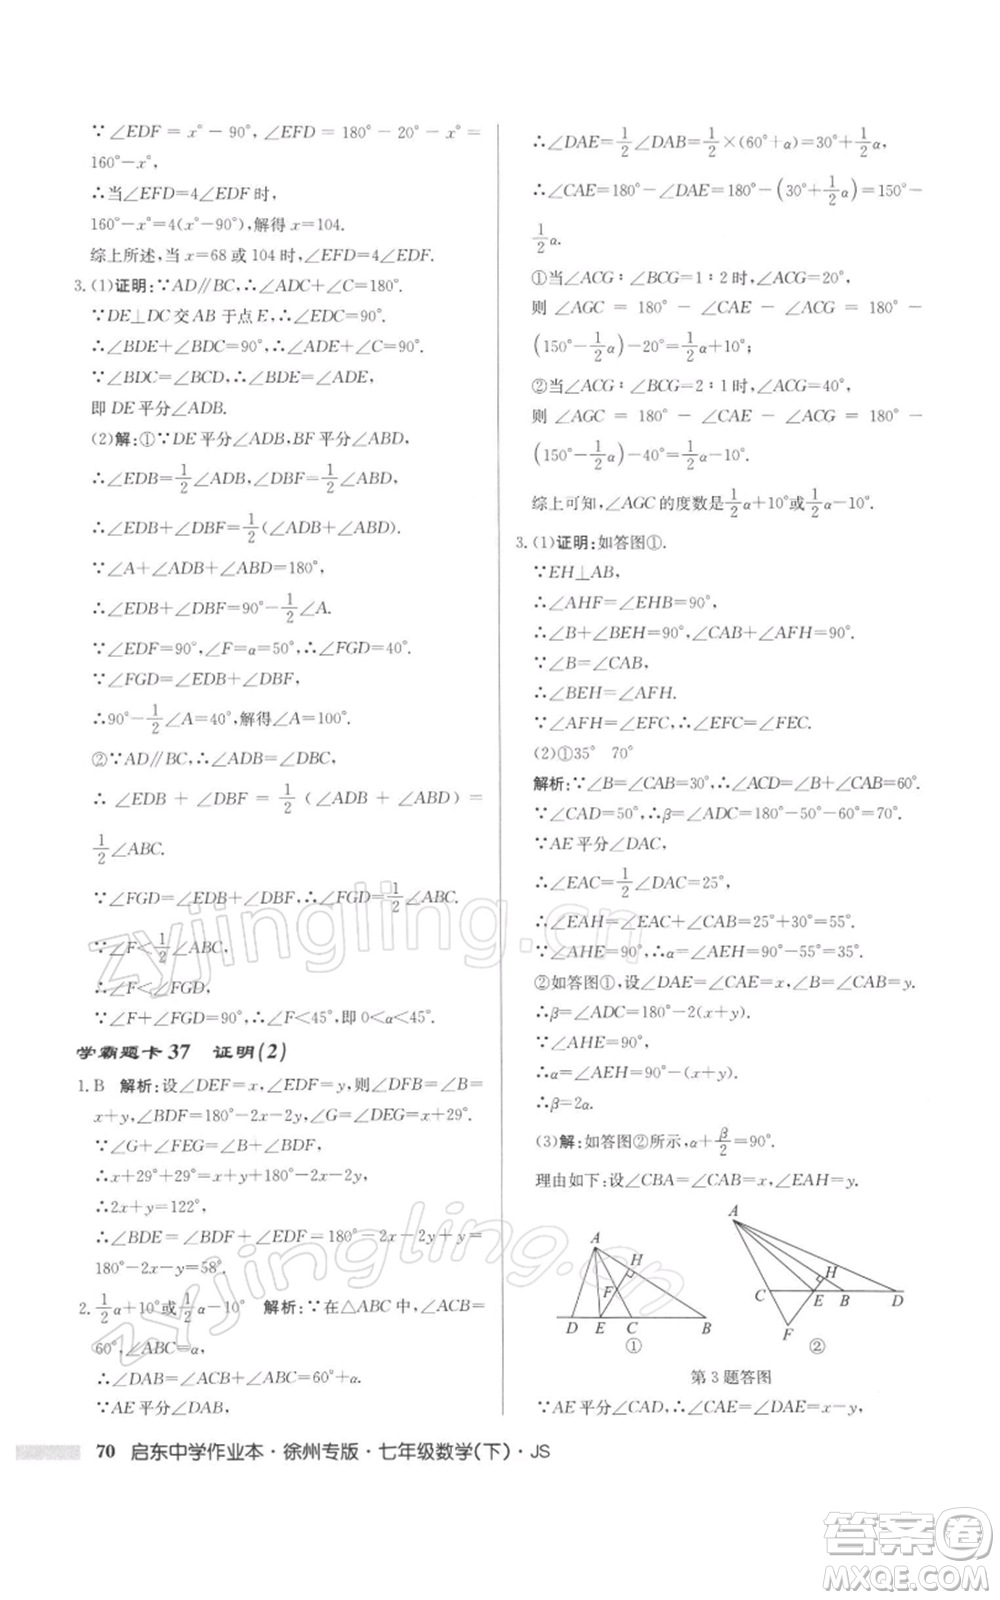 ∵∠EDF = x° − 90°, ∠EFD = 180° − 20° − x° =
160°−x°,
∴当∠EFD=4∠EDF时,
160°−x°=4(x°−90°),解得x=104.
综上所述,当x=68或104时,∠EFD=4∠EDF.
3. (1)证明:∵AD∥BC,∴∠ADC+∠C=180°.
∵DE⊥DC交AB于点E,∴∠EDC=90°.
∴∠BDE+∠BDC=90°.
∴∠ADE+∠C=90°.
∵∠BDC=∠BCD,∴∠BDE=∠ADE,
即DE平分∠ADB.
(2)解:①∵DE平分∠ADB,BF平分∠ABD,
∴∠EDB=1/2∠ADB,∠DBF=1/2∠ABD.
∴∠EDB+∠DBF=1/2(∠ADB+∠ABD).
∵∠A+∠ADB+∠ABD=180°,
∴∠EDB+∠DBF=90°−1/2∠A.
∵∠EDF=90°,∠F=α=50°,∴∠FGD=40°.
∵∠FGD=∠EDB+∠DBF,
∴90°−1/2∠A=40°,解得∠A=100°.
②∵AD∥BC,∴∠ADB=∠DBC,
∴ ∠EDB + ∠DBF = 1/2 (∠ADB + ∠ABD) =
1/2∠ABC.
∵∠FGD=∠EDB+∠DBF,∴∠FGD=1/2∠ABC.
∵∠F<1/2∠ABC,
∴∠F<∠FGD.
∵∠F+∠FGD=90°,∴∠F<45°,即0<α<45°.
学霸题卡37 证明(2)
1. B 解析:设∠DEF=x,∠EDF=y,则∠DFB=∠B=
x+y,∠BDF=180°−2x−2y,∠G=∠DEG=x+29°.
∵∠G+∠FEG=∠B+∠BDF,
∴x+29°+29°=x+y+180°−2x−2y.
∴2x+y=122°,
∴∠BDE=∠BDF+∠EDF=180°−2x−2y+y=
180°−2x−y=58°.
2. 1/2α+10°或1/2α−10° 解析:∵在△ABC中,∠ACB=
60°,∠ABC=α,
∴∠DAB=∠ACB+∠ABC=60°+α,
∵AE平分∠DAB,
∴∠DAE=1/2∠DAB=1/2×(60°+α)=30°+1/2α,
∴∠CAE=180°−∠DAE=180°−(30°+1/2α)=150°−
1/2α.
①当∠ACG∶∠BCG=1∶2时,∠ACG=20°,
则 ∠AGC = 180° − ∠CAE − ∠ACG = 180° −
(150°−1/2α)−20°=1/2α+10°;
②当∠ACG∶∠BCG=2∶1时,∠ACG=40°,
则 ∠AGC = 180° − ∠CAE − ∠ACG = 180° −
(150°−1/2α)−40°=1/2α−10°.
综上可知,∠AGC的度数是1/2α+10°或1/2α−10°.
3. (1)证明:如答图①.
∵EH⊥AB,
∴∠AHF=∠EHB=90°,
∴∠B+∠BEH=90°,∠CAB+∠AFH=90°.
∵∠B=∠CAB,
∴∠BEH=∠AFH.
∵∠AFH=∠EFC,∴∠EFC=∠FEC.
(2)①35° 70°
解析:∵∠B=∠CAB=30°,∴∠ACD=∠B+∠CAB=60°.
∵∠CAD=50°,∴β=∠ADC=180°−50°−60°=70°.
∵AE平分∠DAC,
∴∠EAC=1/2∠DAC=25°,
∴∠EAH=∠EAC+∠CAB=25°+30°=55°.
∵∠AHE=90°,∴α=∠AEH=90°−55°=35°.
②如答图①,设∠DAE=∠CAE=x,∠CAB=y.
∴β=∠ADC=180°−2(x+y).
∴α=∠AEH=90°−(x+y).
∴β=2α.
(3)解:如答图②所示,α+β/2=90°.
理由如下:设∠CBA=∠CAB=x,∠EAH=y.
A
H
F
D E C B
①
A
H
C E B D
F
②
第3题答图
∵AE平分∠DAC,∴∠DAE=∠CAE=x−y,
70 启东中学作业本·徐州专版·七年级数学(下)·JS
zyjingling.cn
zyjingling.cn
答案圈
MXQE.COM